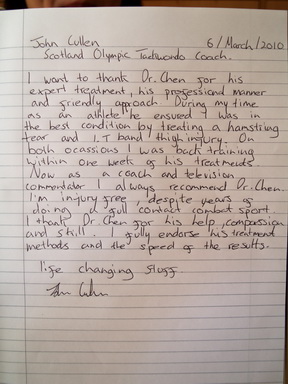 John Cullen 6/March/2010
Scotland Olympic Taekwondo Coach.
I want to thank Dr. Chen for his
expert treatment, his professional manner
and friendly approach. During my time
as an athlete he ensured I was in
the best condition by treating a hamstring
tear and I.T band / thigh injury. On
both ocassions I was back training
within one week of his treatments.
Now as a coach and television
commentator I always recommend Dr. Chen.
I'm injury free, despite years of
doing a full contact combat sport.
I thank Dr Chen for his help, compassion
and skill. I fully endorse his treatment
methods and the speed of the results.
life changing stuff.
John Cullen